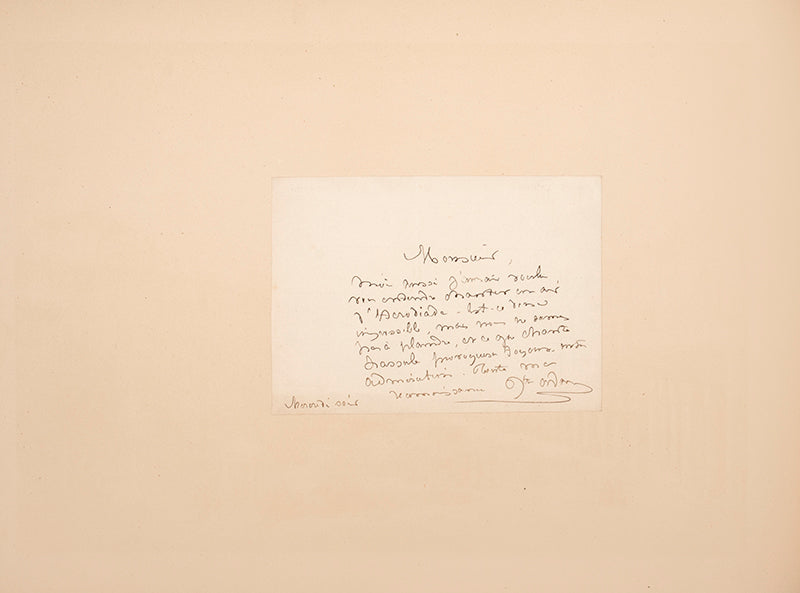 Monsieur,
Moi aussi j'aurais voulu
vous entendre chanter un air
d'Hérodiade. Est-ce donc
impossible, mais nous ne sommes
pas à plaindre, et ce que chante
Lassalle provoquera toujours notre
admiration. Toute ma
reconnaissance
Mercredi soir